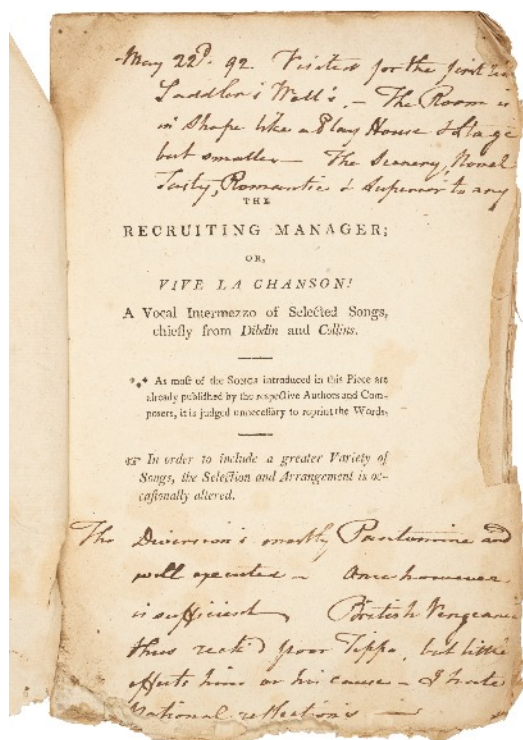 May 22d. 92. Visited for the first
Saddler's Well's. — The Room is
in Shape like a Play House & Stage
but smaller — The Scenery, Novel
Tasty, Romantic & Superior to any
THE
RECRUITING MANAGER;
OR,
VIVE LA CHANSON!
A Vocal Intermezzo of Selected Songs,
chiefly from Dibdin and Collins.
*** As most of the SONGS introduced in this Piece are
already published by the respective Authors and Com-
posers, it is judged unnecessary to reprint the Words.
☞ In order to include a greater Variety of
Songs, the Selection and Arrangement is oc-
casionally altered.
The Diversion's mostly Pantomime and
well executed — Once however
is sufficient British Vengeance
thus poor Tippo, but little
affects him or his cause — I hate
National reflections —